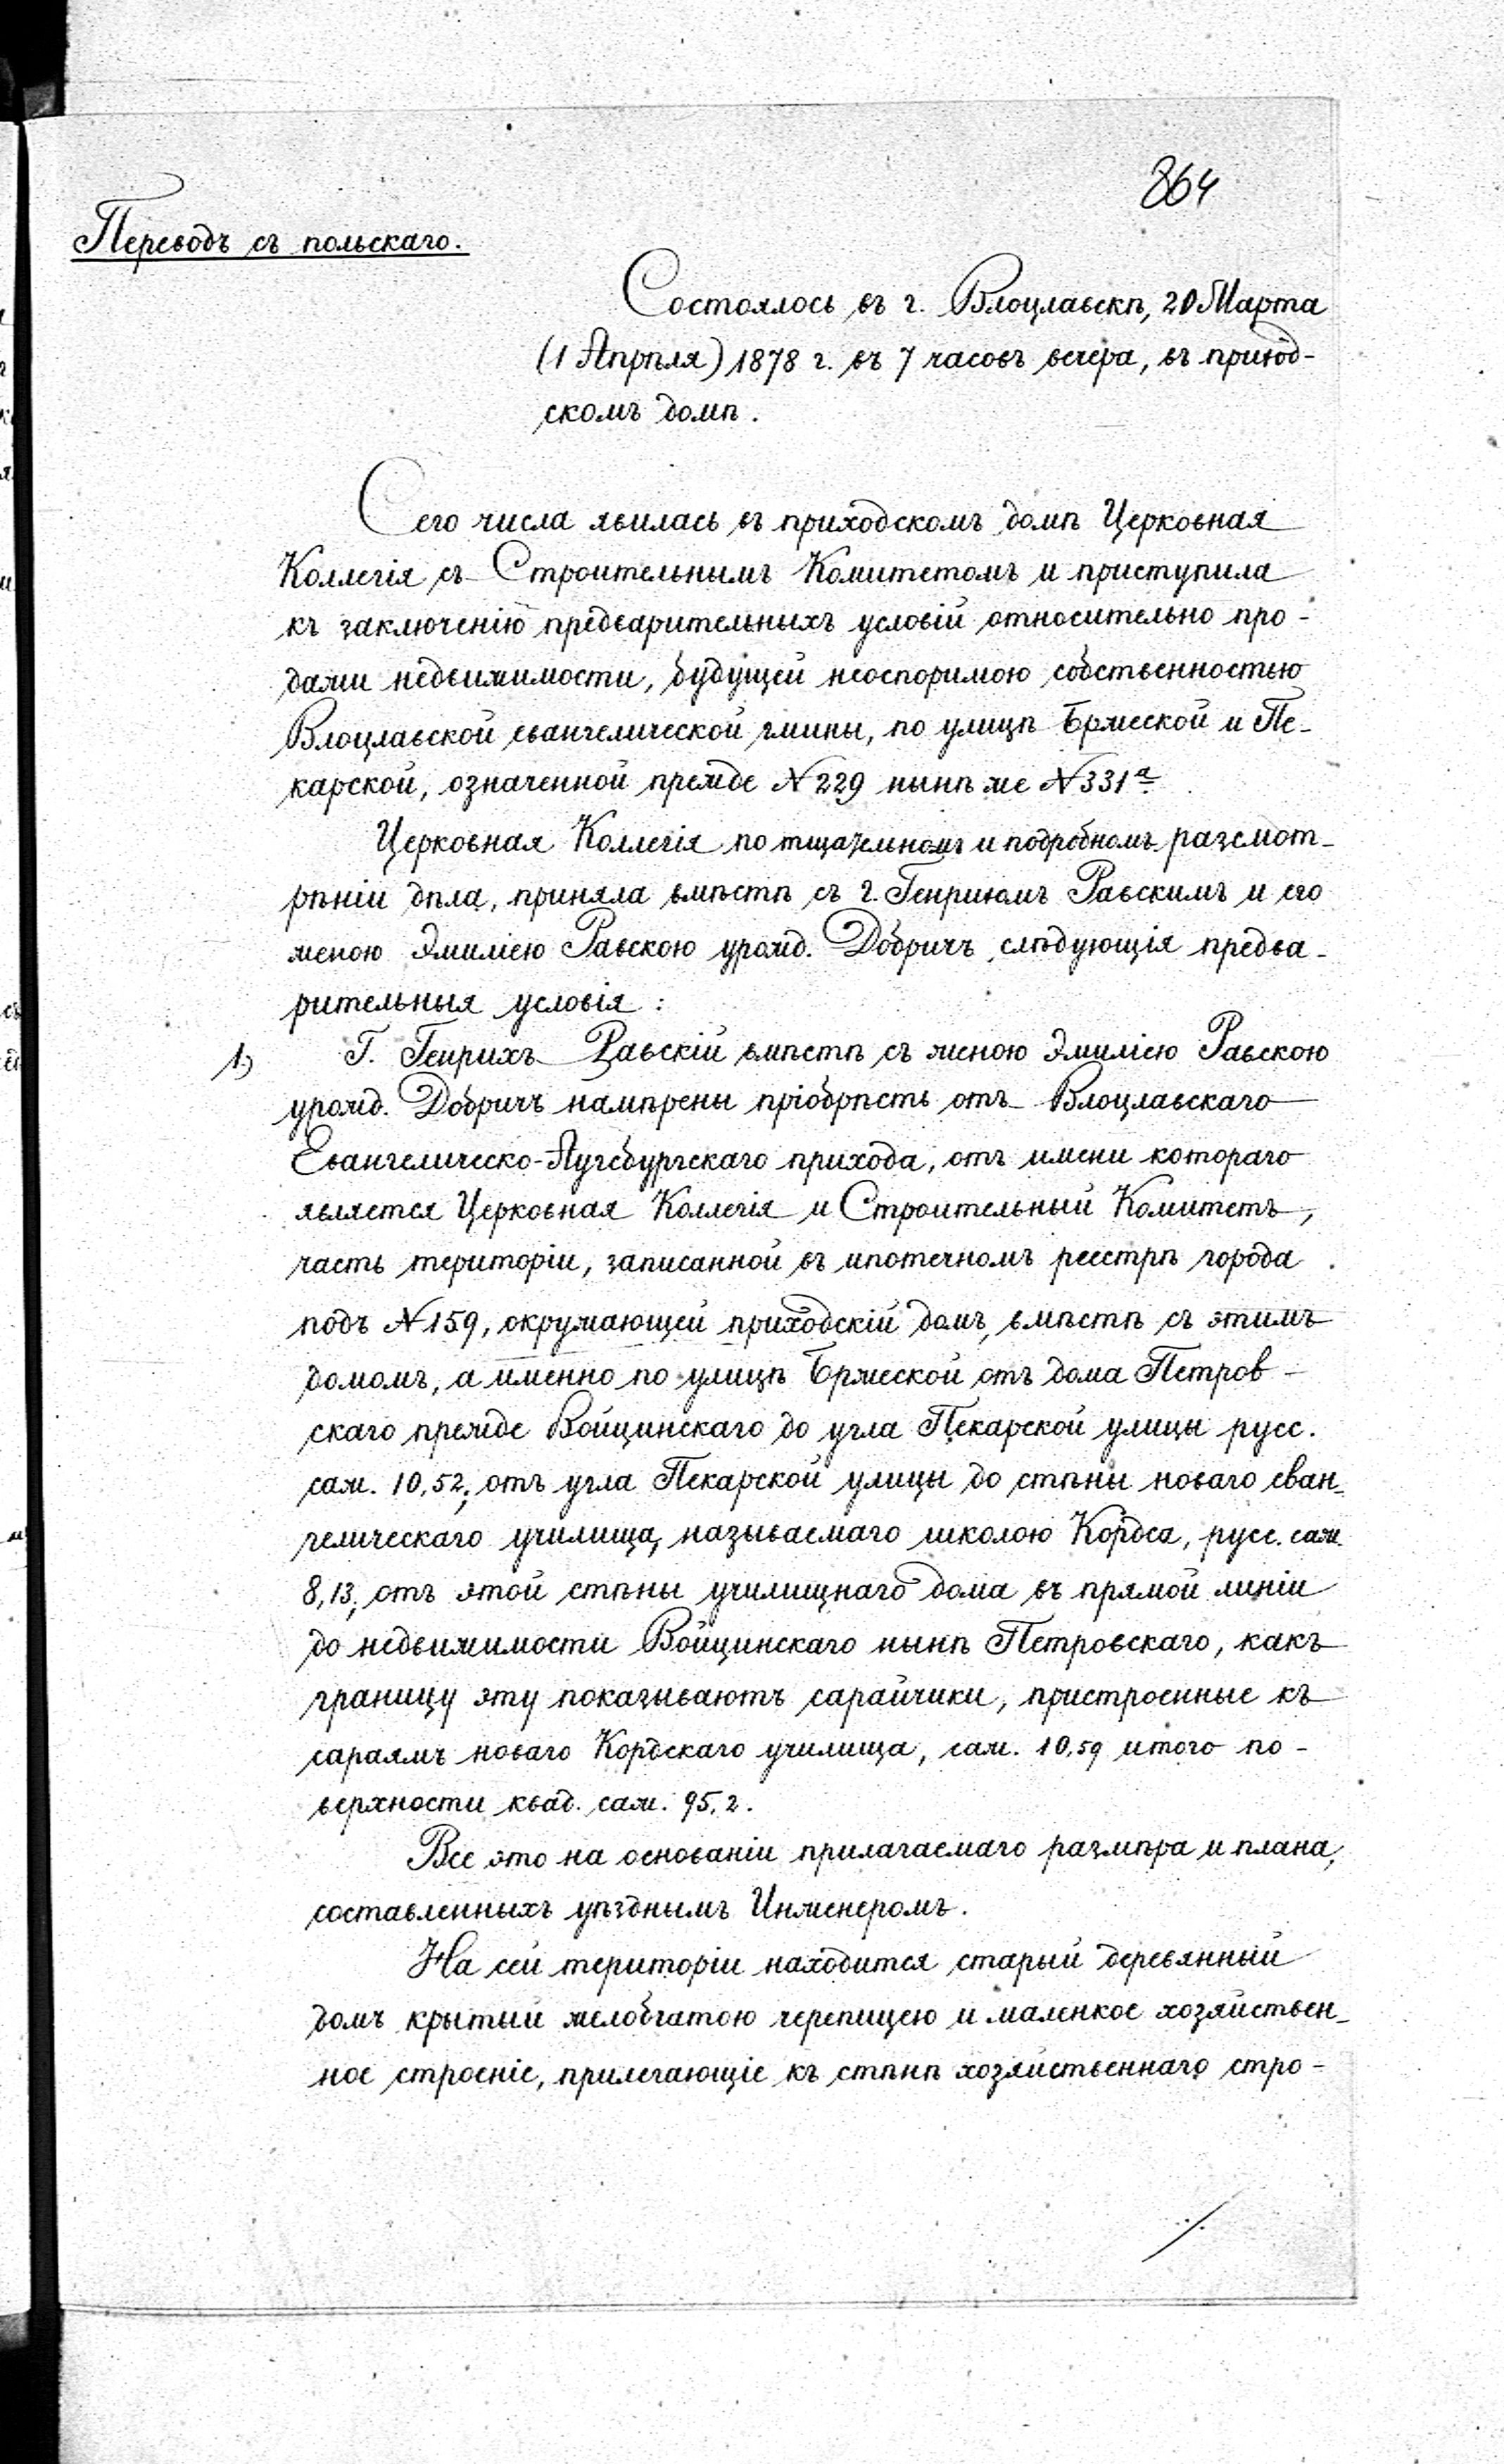 864
Переводъ съ польскаго.
Состоялось въ г. Влоцлавскѣ, 20 Марта
(1 Апрѣля) 1878 г. въ 7 часовъ вечера, въ приход-
скомъ домѣ.
Сего числа явилась въ приходскомъ домѣ Церковная
Коллегія съ Строительнымъ Комитетомъ и приступила
къ заключенію предварительныхъ условій относительно про-
дажи недвижимости, будущей неоспоримою собственностью
Влоцлавской евангелической гмины, по улицѣ Бржеской и Пе-
карской, означенной прежде № 229 нынѣ же № 331а.
Церковная Коллегія по тщательномъ и подробномъ разсмот-
рѣніи дѣла, приняла вмѣстѣ съ г. Генрихомъ Равскимъ и его
женою Эмиліею Равскою урожд. Добричъ, слѣдующія предва-
рительныя условія:
1) Г. Генрихъ Равскій вмѣстѣ съ женою Эмиліею Равскою
урожд. Добричъ намѣрены пріобрѣсть отъ Влоцлавскаго
Евангелическо-Аугсбургскаго прихода, отъ имени котораго
является Церковная Коллегія и Строительный Комитетъ,
часть територіи, записанной въ ипотечномъ реестрѣ города
подъ № 159, окружающей приходскій домъ, вмѣстѣ съ этимъ
домомъ, а именно по улицѣ Бржеской отъ дома Петров-
скаго прежде Войцинскаго до угла Пекарской улицы русс.
саж. 10,52; отъ угла Пекарской улицы до стѣны новаго еван-
гелическаго училища, называемаго школою Кордса, русс. саж.
8,13; отъ этой стѣны училищнаго дома въ прямой линіи
до недвижимости Войцинскаго нынѣ Петровскаго, какъ
границу эту показываютъ сарайчики, пристроенные къ
сараямъ новаго Кордскаго училища, саж. 10,59 итого по-
верхности квад. саж. 95,2.
Все это на основаніи прилагаемаго размѣра и плана,
составленныхъ уѣзднымъ Инженеромъ.
На сей територіи находится старый деревянный
домъ крытый желобчатою черепицею и маленкое хозяйствен-
ное строеніе, прилегающіе къ стѣнѣ хозяйственнаго стро-
./.